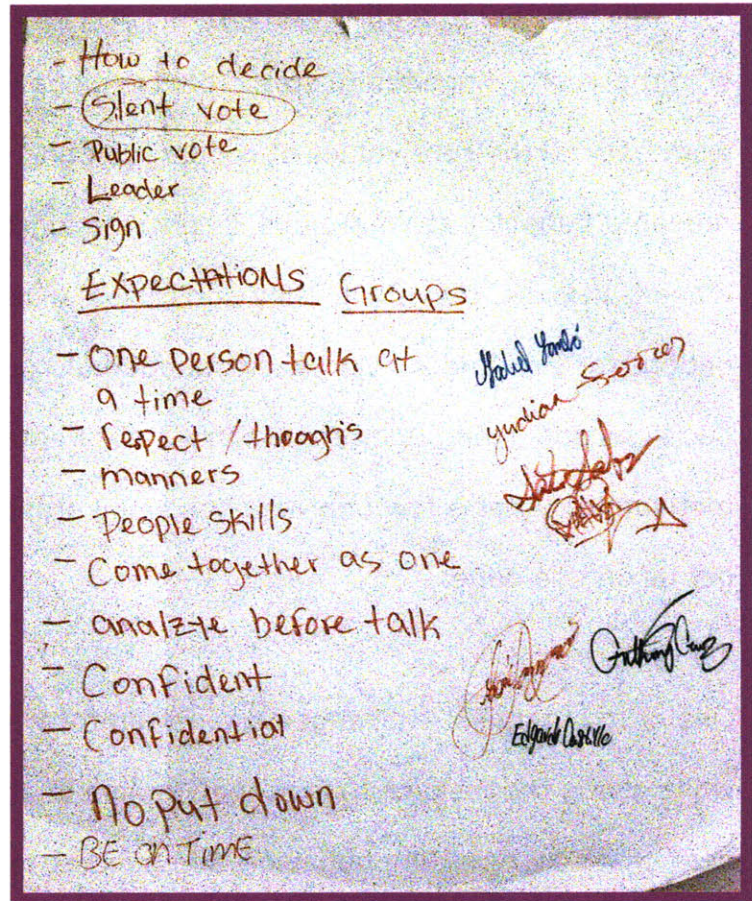 - How to decide
- Silent vote
- Public vote
- Leader
- Sign
EXPECtAtIONS Groups
- One person talk at
a time
- respect / thooghts
- manners
- People skills
- Come together as one
- analzye before talk
- Confident
- Confidential
- No put down
- BE ON TIME
yudian
Anthony Cruz
Edgardo Castillo